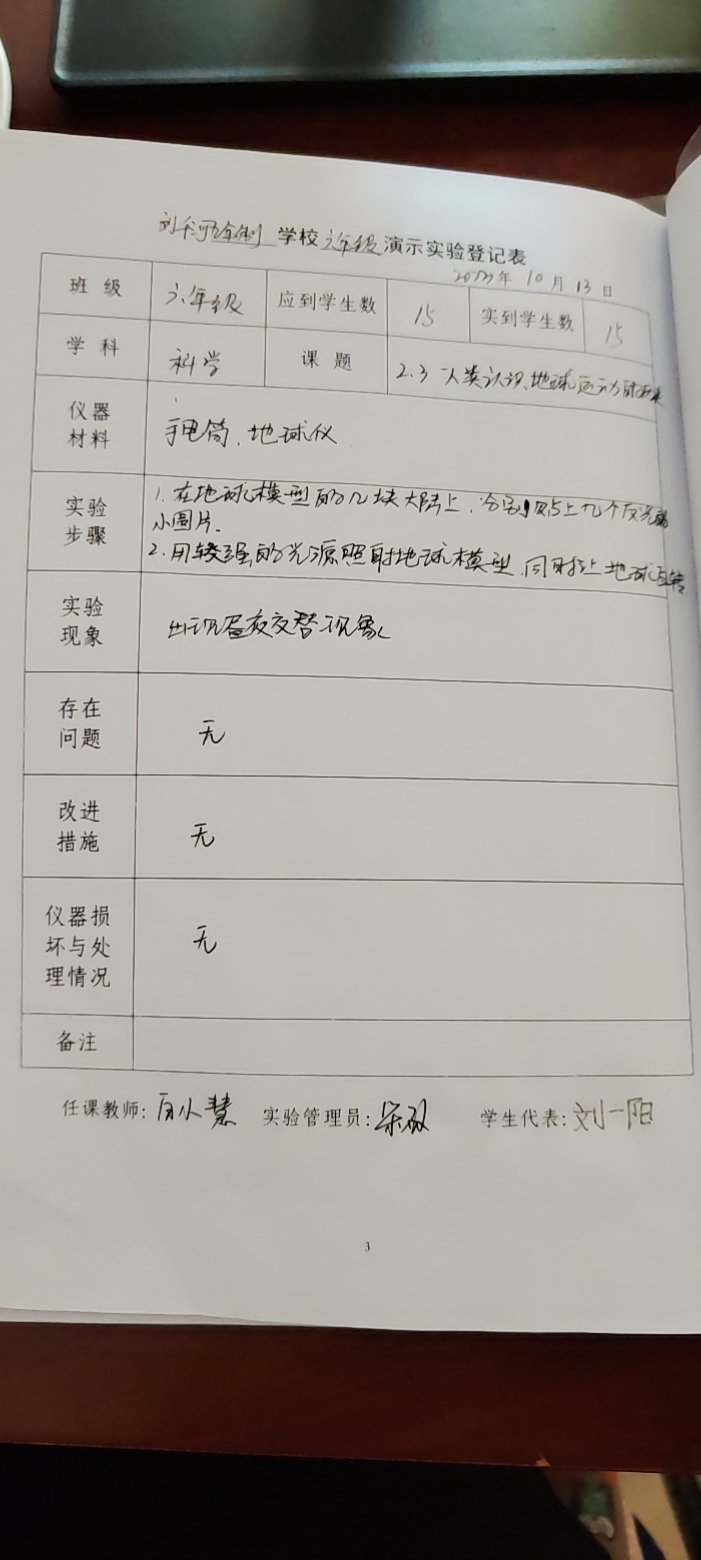 学校六年级演示实验登记表
年 10 月 13 日
班 级 六年级 应到学生数 15 实到学生数 15
学 科 科学 课 题 2.3 人类认识地球运动的历史
仪器材料 手电筒、地球仪
实验步骤 1. 在地球模型的几块大陆上，分别贴上几个反光的
小圆片.
2. 用较强的光源照射地球模型，同时让地球自转
实验现象 出现昼夜交替现象
存在问题 无
改进措施 无
仪器损坏与处理情况 无
备注
任课教师: 实验管理员: 学生代表: 刘一阳
3